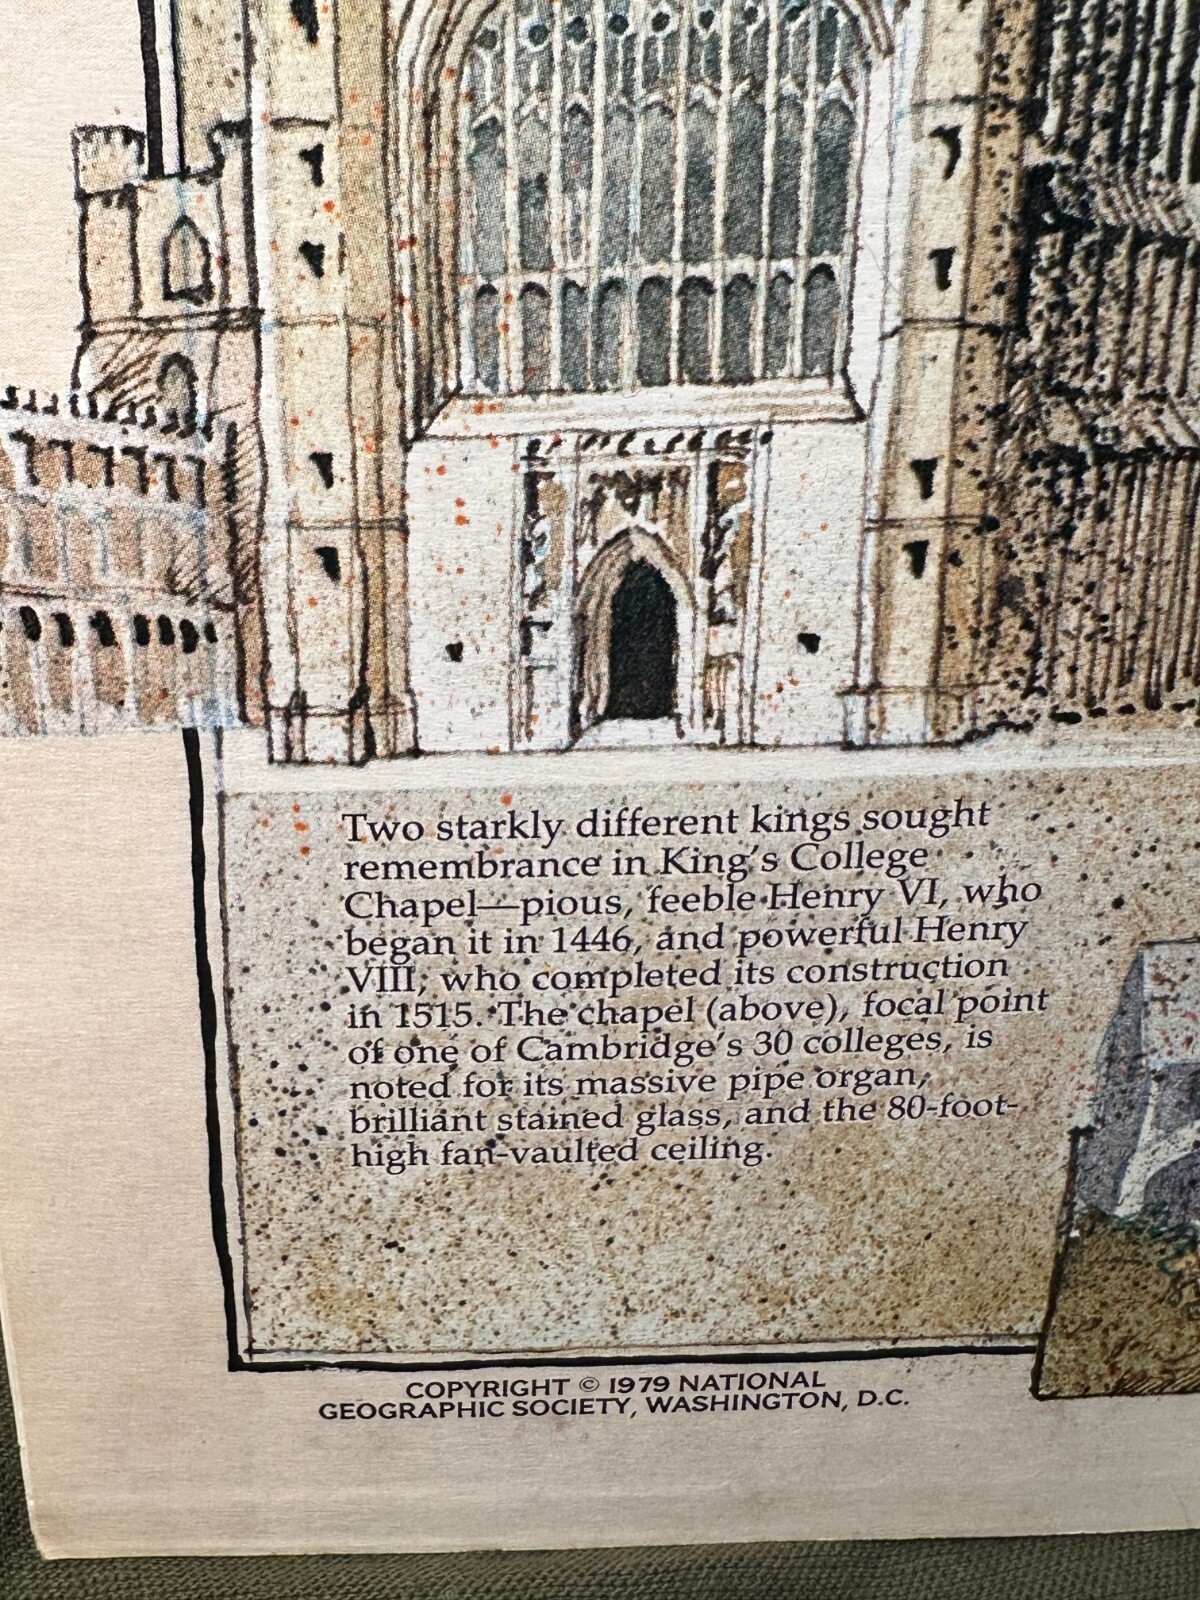 Two starkly different kings sought
remembrance in King's College
Chapel—pious, feeble Henry VI, who
began it in 1446, and powerful Henry
VIII, who completed its construction
in 1515. The chapel (above), focal point
of one of Cambridge's 30 colleges, is
noted for its massive pipe organ,
brilliant stained glass, and the 80-foot-
high fan-vaulted ceiling.
COPYRIGHT © 1979 NATIONAL
GEOGRAPHIC SOCIETY, WASHINGTON, D.C.